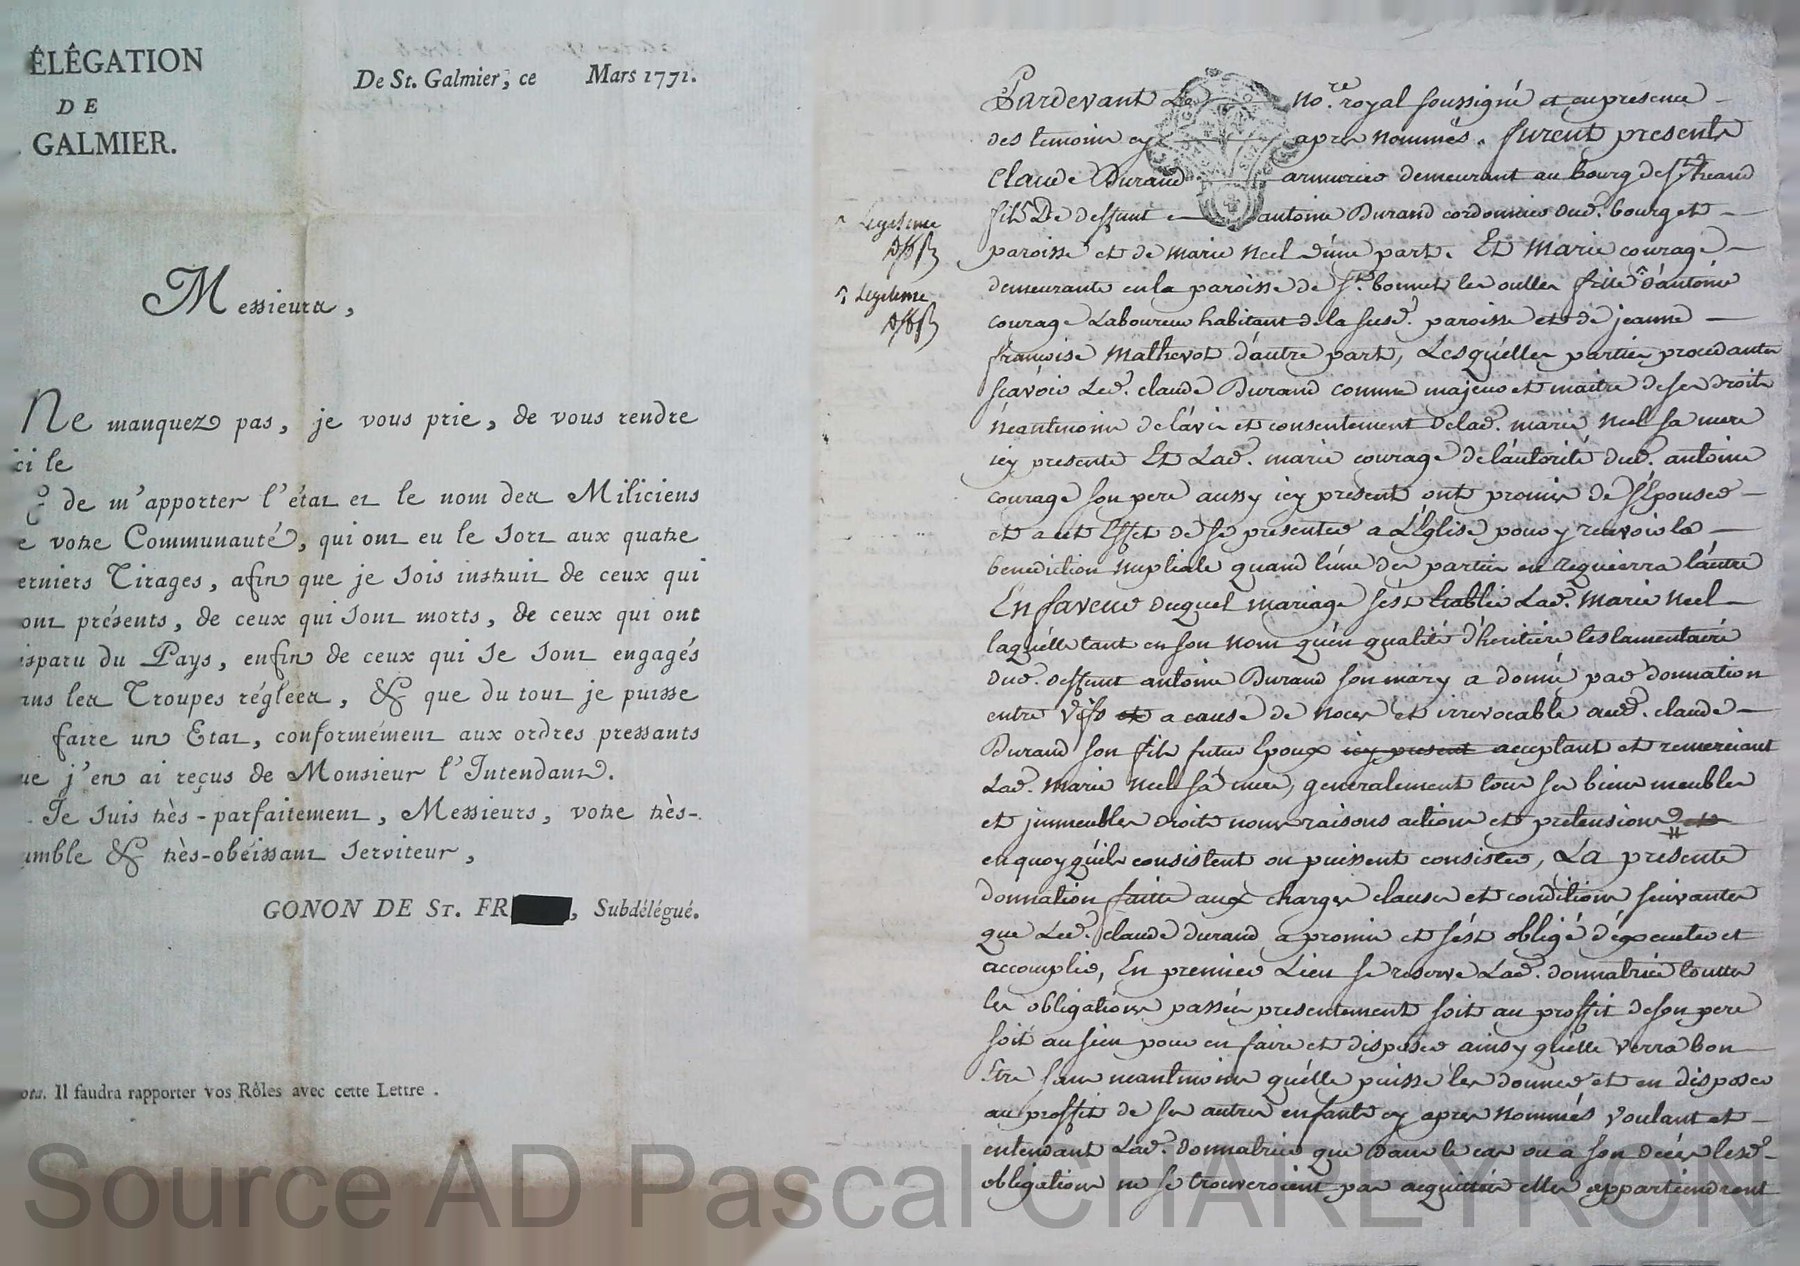 ÉLÉGATION
DE
GALMIER.
De St. Galmier, ce Mars 1771.
Messieurs,
Ne manquez pas, je vous prie, de vous rendre
ici le
& de m'apporter l'état et le nom des Miliciens
e votre Communauté, qui ont eu le sort aux quatre
erniers Tirages, afin que je sois instruit de ceux qui
ont présents, de ceux qui sont morts, de ceux qui ont
isparu du Pays, enfin de ceux qui se sont engagés
ans les Troupes réglées, & que du tout je puisse
faire un Etat, conformément aux ordres pressants
ue j'en ai reçus de Monsieur l'Intendant.
Je suis très-parfaitement, Messieurs, votre très-
umble & très-obéissant serviteur,
GONON DE ST. FR, Subdélégué.
ota. Il faudra rapporter vos Rôles avec cette Lettre.
Pardevant Le No.re royal soussigné et en presence
des temoins cy apres nommés. furent presents
Claude Durand armurier demeurant au bourg de St heand
fils De deffunt antoine Durand cordonnier dud. bourg et
paroisse et de marie Neel d'une part. Et Marie courage
demeurante en la paroisse de St bonnet les oulles fille d'antoine
courage Laboureur habitant de la susd. paroisse et de jeanne
françoise Malhevot d'autre part, Lesquelles parties procedantes
scavoir Led. claude Durand comme majeur et maitre de ses droits
neantmoins de l'avis et consentement de lad. marie Neel sa mere
icy presente Et Lad. marie courage de l'autorité dud. antoine
courage son pere aussy icy present ont promis de s'Epouser
et a cet Effet de se presenter a L'Eglise pour y recevoir la
benediction nuptiale quand l'une des parties en requierra l'autre
En faveur duquel mariage s'est establie Lad. Marie Neel
laquelle tant en son nom qu'en qualité d'heritiere testamentaire
dud. deffunt antoine Durand son mary a donné par donnation
entre vifs et a cause de noces et irrevocable aud. claude
Durand son fils futur Epoux icy present acceptant et remerciant
Lad. Marie Neel sa mere, generalement tous ses biens meubles
et jmmeubles droits noms raisons actions et pretensions
en quoy qu'ils consistent ou puissent consister, La presente
donnation faitte aux charges clauses et conditions suivantes
que Led. claude durand a promis et s'est obligé d'executer et
accomplir, En premier Lieu se reserve Lad. donnatrice touttes
les obligations passées presentement soit au proffit de son pere
soit au sien pour en faire et disposer ainsy qu'elle verra bon
Etre sans neantmoins qu'elle puisse les donner et en disposer
au proffit de ses autres enfants cy apres nommés voulant et
entendant Lad. donnatrice que dans le cas ou a son décés lesd.
obligations ne se trouveroient pas acquittées elles appartiendront
Legitime
Legitime
Source AD Pascal CHAREYRON